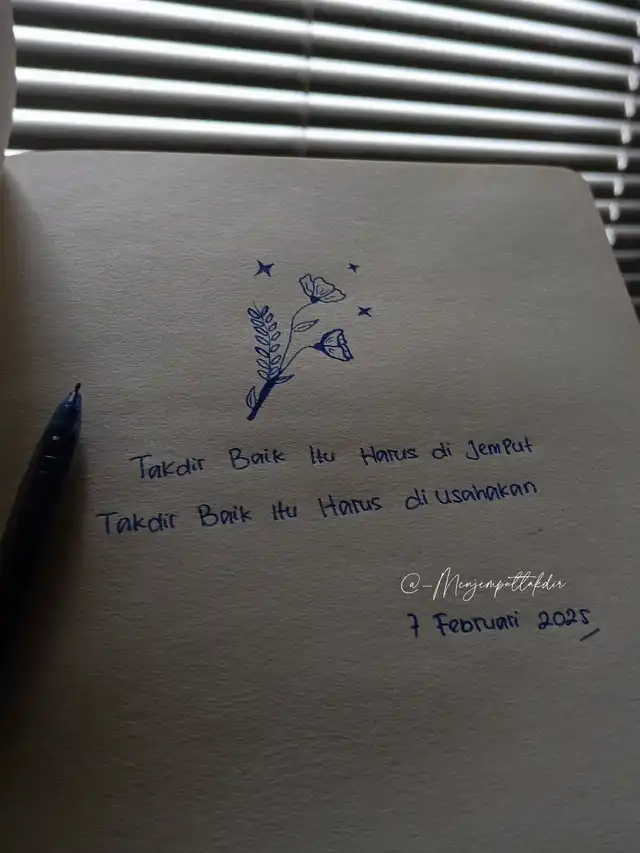 Takdir Baik Itu Harus di Jemput
Takdir Baik Itu Harus di usahakan
@-Menjemputtakdir
7 Februari 2025